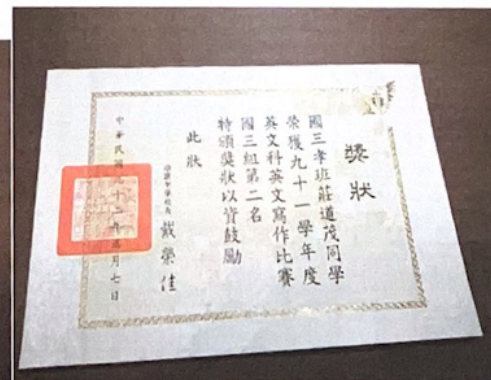 獎狀
國三孝班莊道茂同學
榮獲九十一學年度
英文科英文寫作比賽
國三組第二名
特頒獎狀以資鼓勵
此狀
戴榮佳
中華民國九十二年五月七日